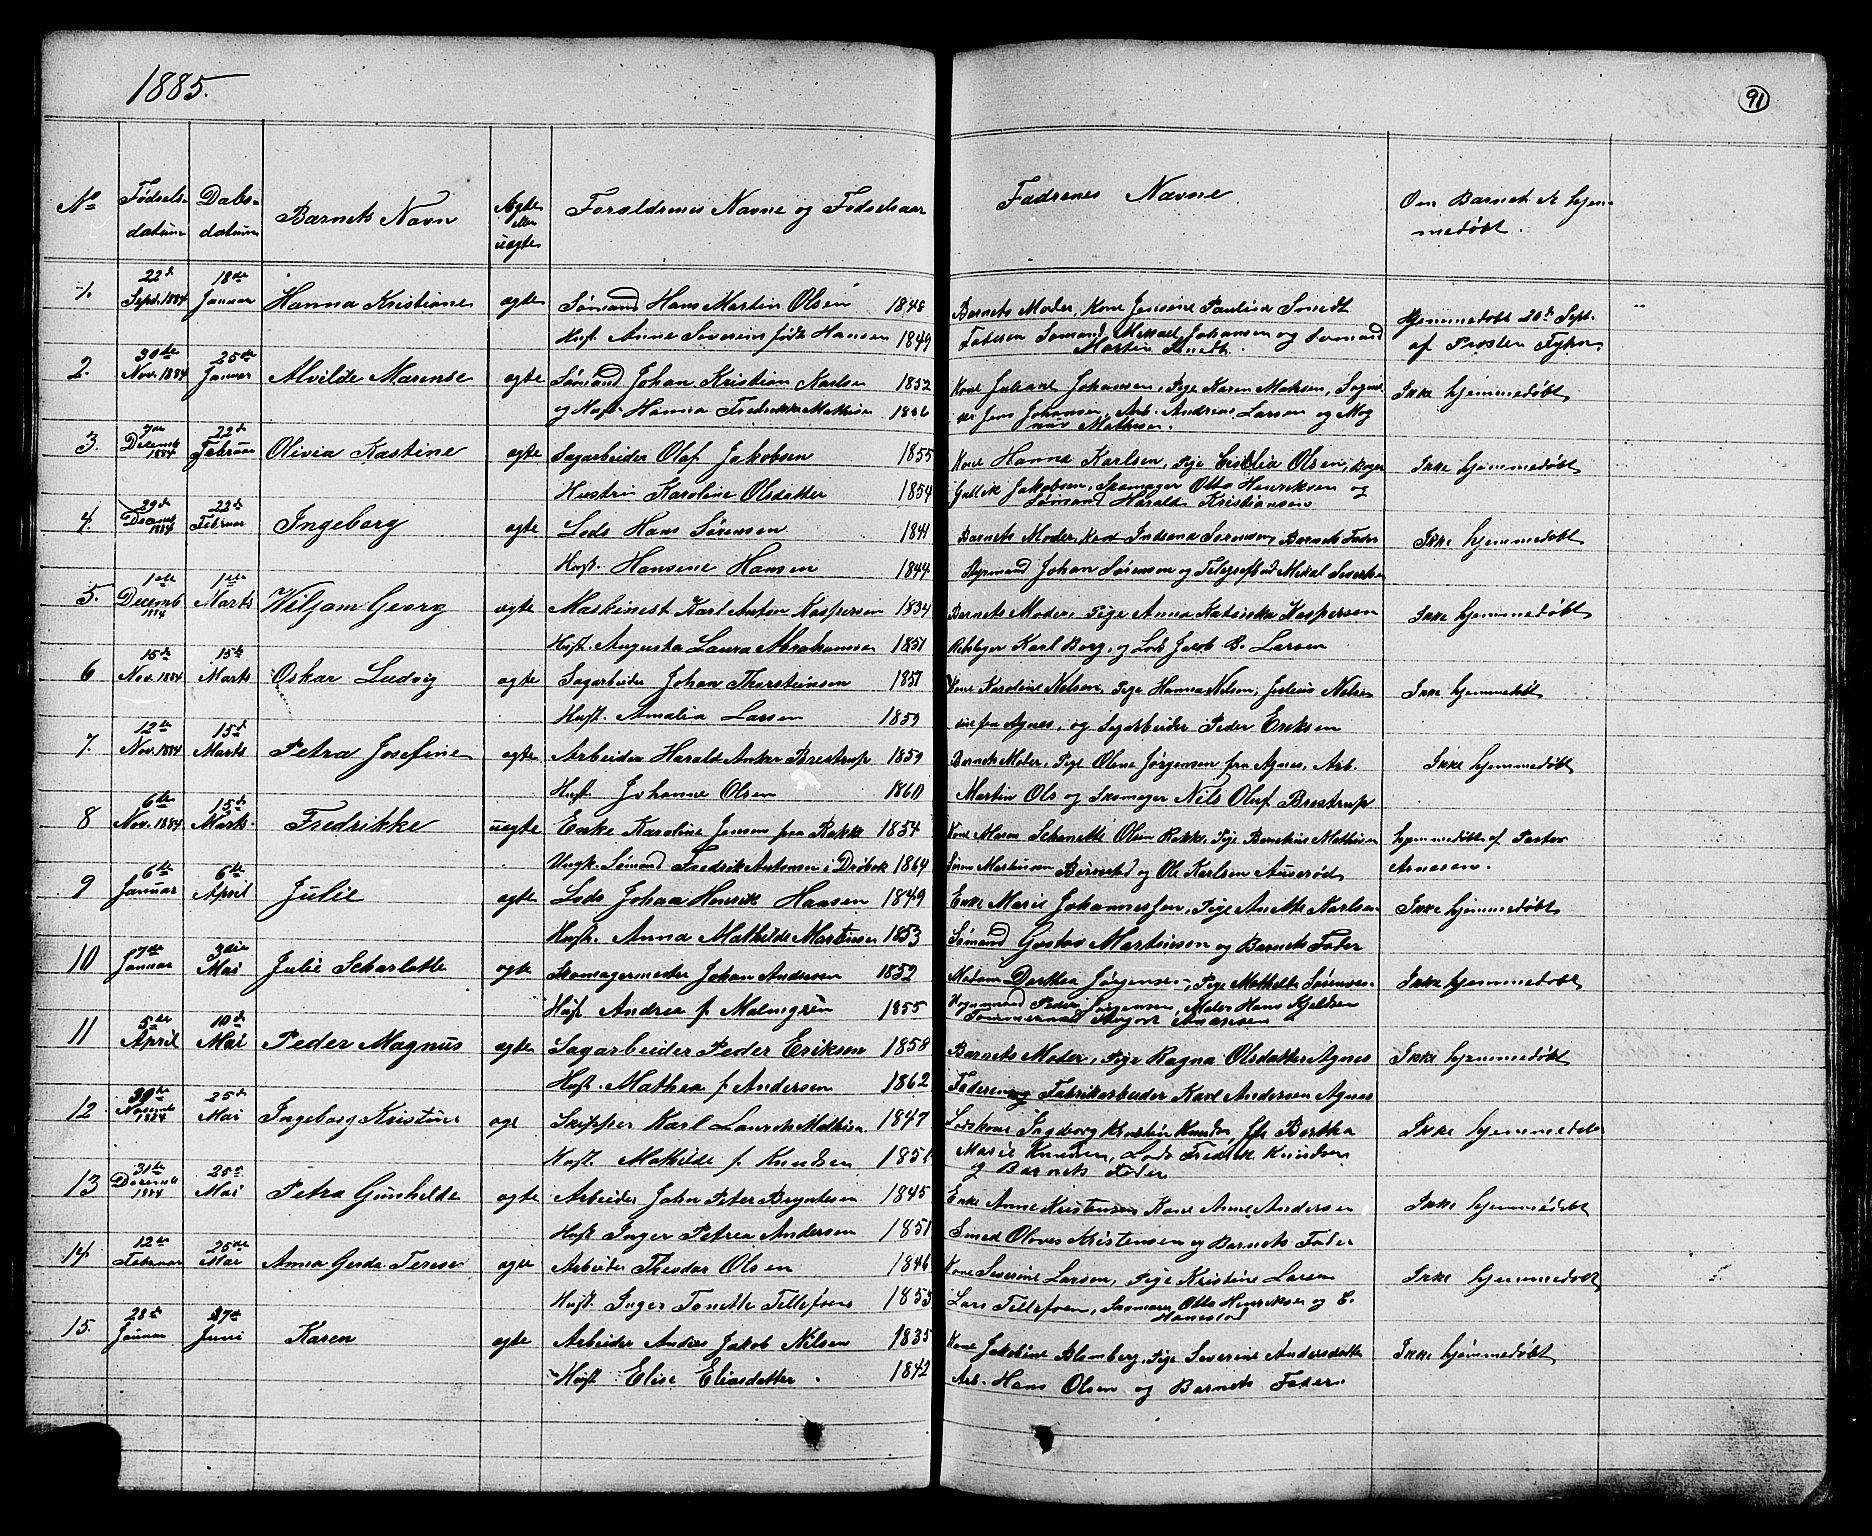 1885.
91
No
Fødsels-
datum
Dabs-
datum
Barnets Navn
Ægte
eller
uægte
Forældrenes Navne og Fødselsaar
Faddrenes Navne
Om Barnet er hjem
medøbt.
1. 22d Sept. 1884 18de Januar Hanna Kristiane ægte Sømand Hans Martin Olsen 1848 Barnets Moder, Kone Jensine Pauline Smidt Hjemmedøbt 20d Sept.
Hust. Anne Severine født Hansen 1849 Faderen Sømand Mikkael Johansen og Sømand af Presten
Martin Smidt.
2. 30te Nov. 1884 25de Januar Alvilde Marense ægte Sømand Johan Kristian Karlsen 1852 Kone Juliane Johansen, Pige Karen Maksen, Ikke hjemmedøbt
og Hust. Hanna Fredrikke Mathisen 1856 Jens Johansen, Arb. Andreas Larsen og Mag
nus Mathisen.
3. 7de Decemb 1884 22d Februar Olivia Kastine ægte Sagarbeider Olaf Jakobsen 1855 Kone Hanna Karlsen, Pige Cicilia Olsen, Ikke hjemmedøbt
Hustru Karoline Olsdatter 1854 Jakobsen, Skomager Otto Henriksen og
Sømand Harald Kristiansen
4. 29d Decemb 1884 22d Februar Ingeborg ægte Lods Hans Sørensen 1841 Barnets Moder, Kone Indiana Sørensen, Barnets Fader Ikke hjemmedøbt
Hust. Hansine Hansen 1844 Styrmand Johan Sørensen og
5. 1ste Decemb 1884 1ste Marts Wiljam Georg ægte Maskinest Karl Anton Kaspersen 1834 Barnets Moder, Pige Anna Katinka Kaspersen Ikke hjemmedøbt
Hust. Augusta Laura Abrahamsen 1851 Karl Borg, og Lods Jacob B. Larsen
6 15d Nov. 1884 15de Marts Oskar Ludvig ægte Sagarbeider Johan Thorsteinsen 1857 Kone Karoline Nelsen, Pige Hanna Nelsen, Julius Nelsen Ikke hjemmedøbt
Hust. Amalia Larsen 1859 fra Agnes, og Sagarbeider Peder Eriksen
7. 12te Nov. 1884 15d Marts Petra Josefine ægte Arbeider Harald Anker Brestrup 1859 Barnets Moder, Pige Olene Jørgensen fra Agnes, Arb. Ikke hjemmedøbt
Hust. Johanne Olsen 1860 Martin Ols og Skomager Nils Oluf Brestrup
8 6te Nov. 1884 15d Marts Fredrikke uægte Enke Karoline Jensen fra Rakke 1854 Kone Maren Schanette Olsen Rakke, Pige Mathisen hjemmedøbt af Pastor
Ungk. Sømand Fredrik Antonsen i Drøbak 1864 og Ole Karlsen Auserød Arnesen.
9 6te Januar 6te April Julie ægte Lods Johan Henrik Hansen 1849 Enke Marie Johannessen, Pige Anette Karlsen Ikke hjemmedøbt
Hust. Anna Mathilde Martinsen 1853 Sømand Gustav Martinsen og Barnets Fader
10 7de Januar 3die Mai Julie Scharlotte ægte Skomagermester Johan Andresen 1852 Madam Dorthea Jørgensen, Pige Mathilde Sørensen Ikke hjemmedøbt
Hust Andrea f. Malmgren 1855 Peder Jørgensen, Maler Hans Kjeldsen
11 5te April 10d Mai Peder Magnus ægte Sagarbeider Peder Eriksen 1858 Barnets Moder, Pige Ragna Olsdatter Agnes Ikke hjemmedøbt
Hust. Mathea f. Andersen 1862 Faderen og Fabrikarbeider Karl Andersen Agnes
12 30te Novemb 1884 25d Mai Ingeborg Kristine ægt Skipper Karl Laurits Mathisen 1847 Lodskone Ingeborg Kristin Knudsen, Bertha Ikke hjemmedøbt
Hust. Mathilde f. Knudsen 1851 Marie Knudsen, Lods Fredrik Knudsen
og Barnets Fader
13 31te Decemb 1884 25d Mai Petra Gunhilde ægte Arbeider John Peter Bryntesen 1845 Enke Anne Kristensen Kone Anne Andersen Ikke hjemmedøbt
Hust Inger Petrea Andersen 1851 Smed Olaves Kristensen og Barnets Fader
14 12te Februar 25de Mai Anna Gerda Terese ægte Arbeider Theodor Olsen 1846 Kone Severine Larsen, Pige Kristine Larsen Ikke hjemmedøbt
Hust. Inger Tonette Tellefsen 1853 Lars Tellefsen, Skomager Otto Henriksen og C.
15. 28d Januar 27de Juni Karen ægte Arbeider Anders Jakob Nilsen 1835 Kone Jakobine Blomberg, Pige Severine Andersdatter Ikke hjemmedøbt
Hust Elise Eliasdatter. 1842 Arb. Hans Olsen og Barnets Fader.